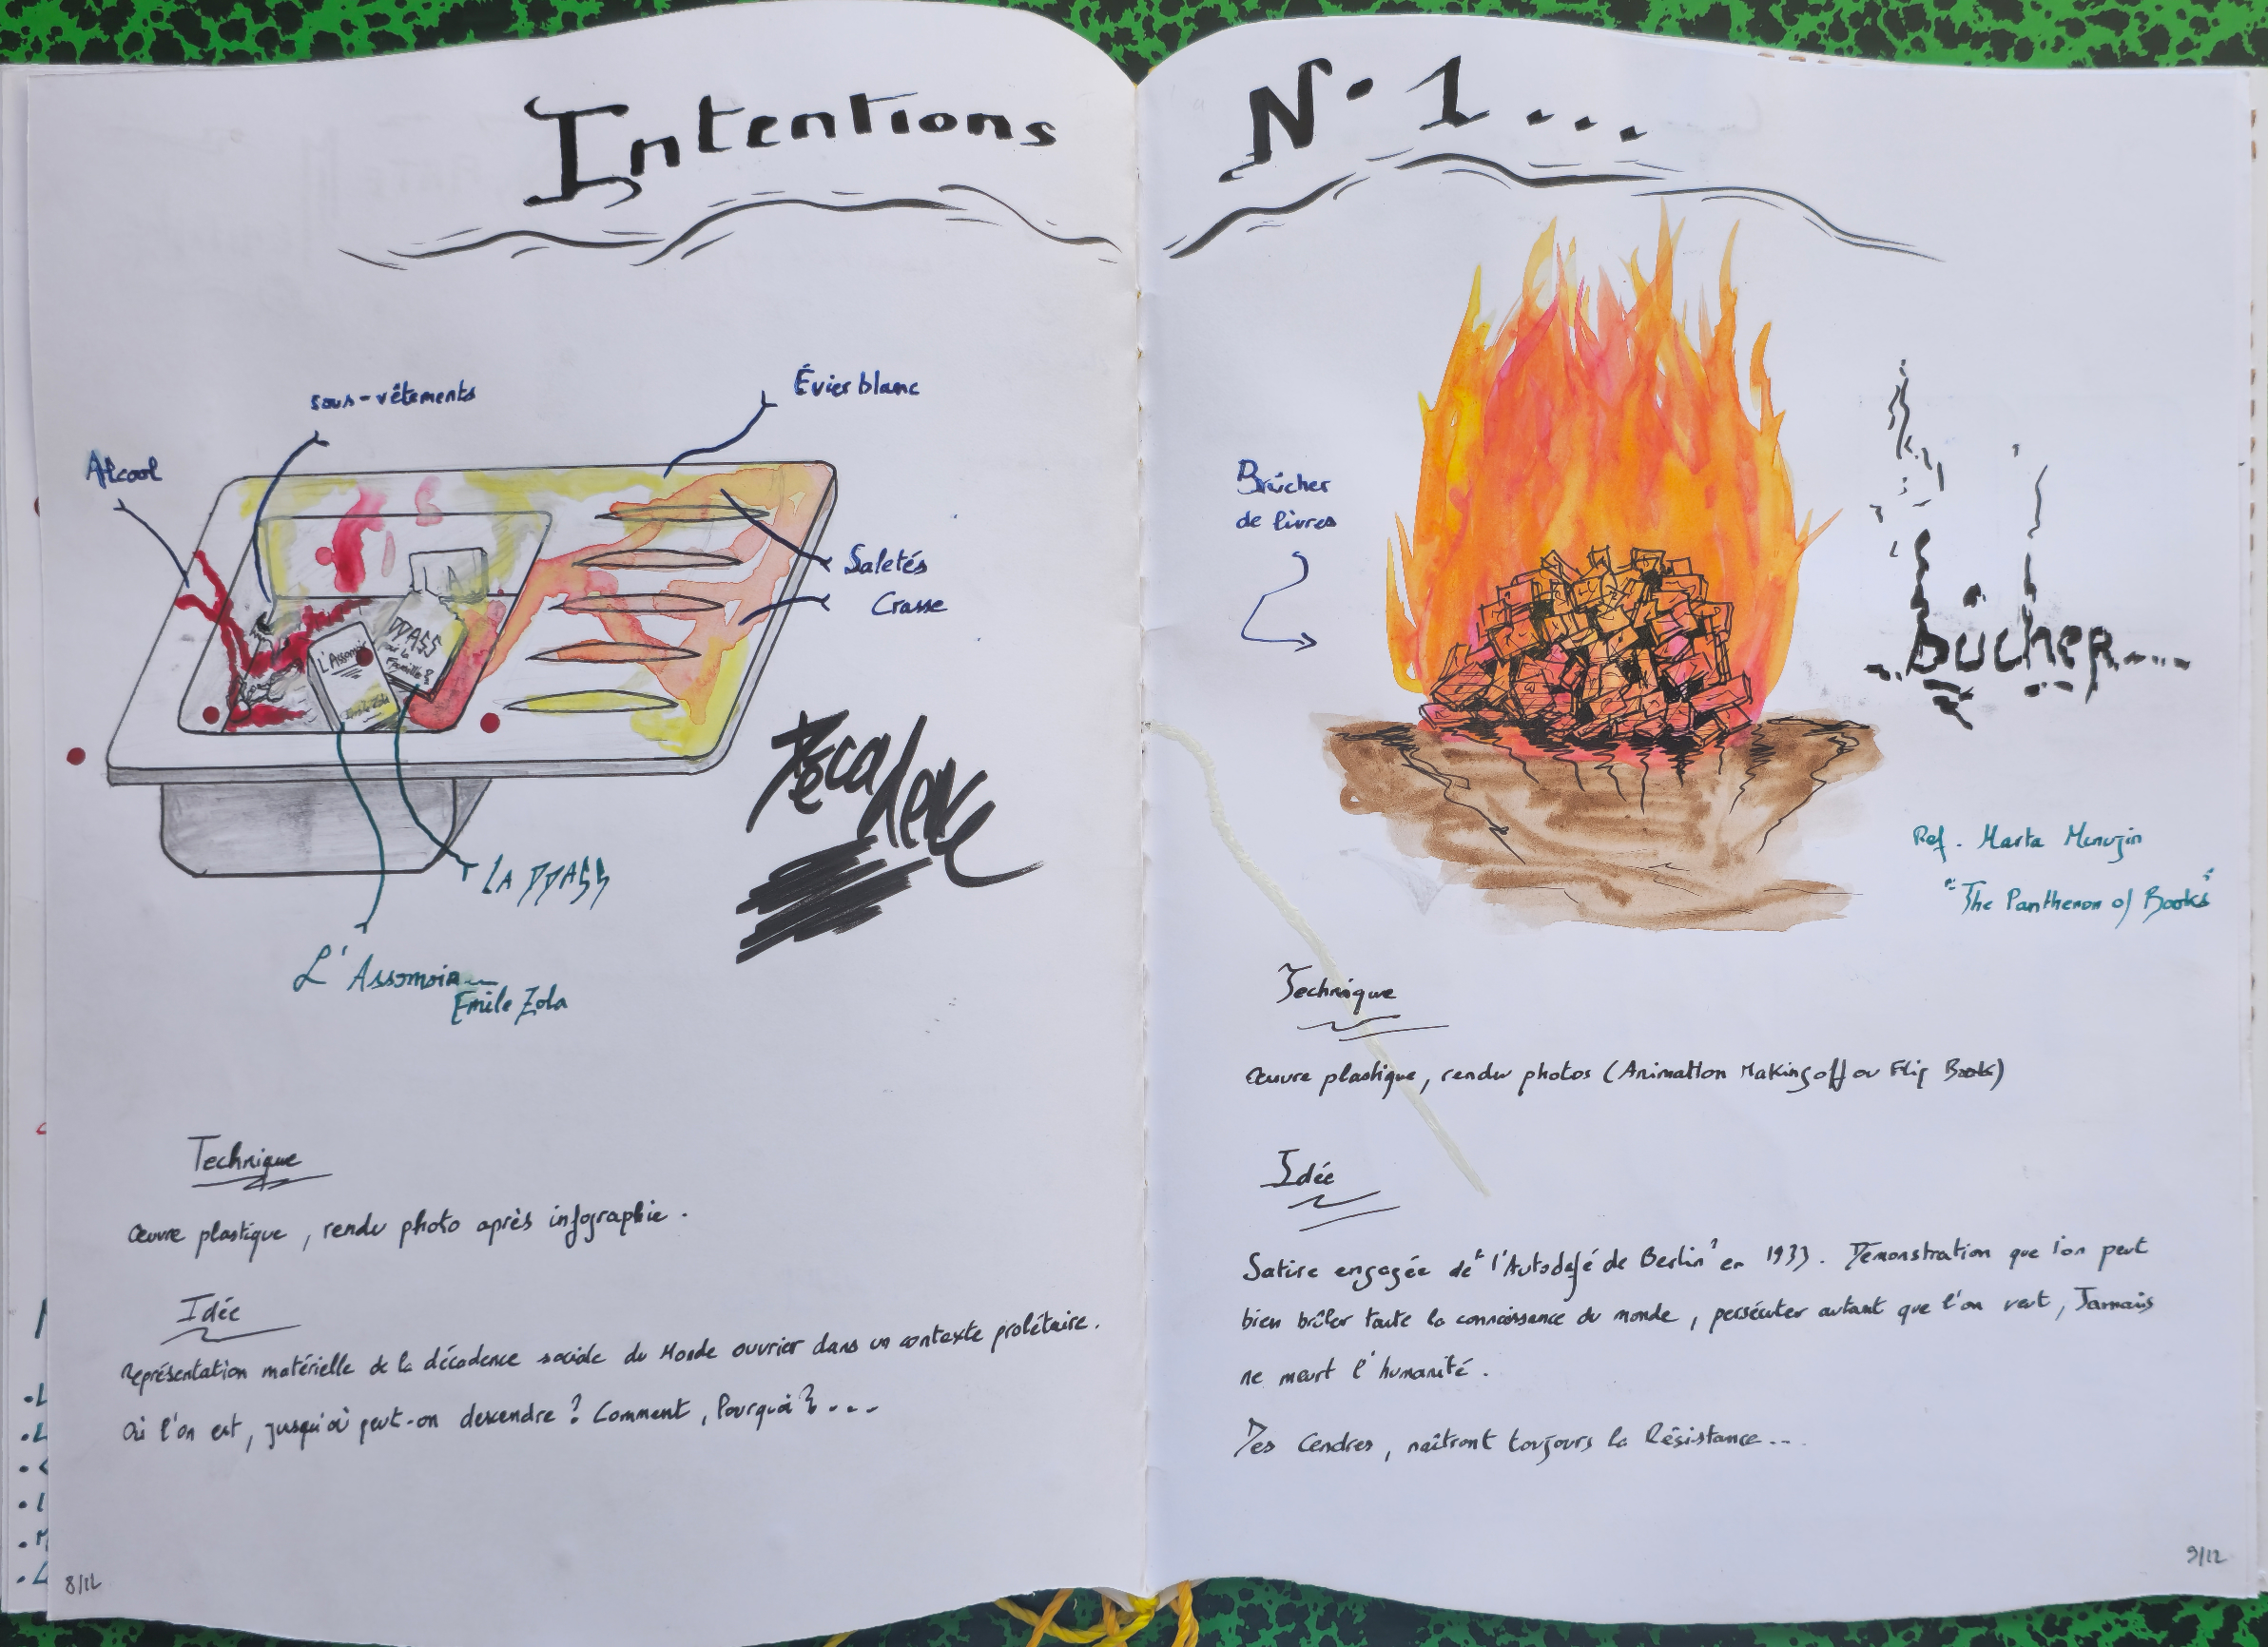 Intentions N° 1...
sous-vêtements
Évier blanc
Alcool
Saletés
Crasse
L'Assomoir
DDASS
ou la
Famille?
Décadence
LA DDASS
L'Assomoir
Emile Zola
Technique
Œuvre plastique, rendu photo après infographie.
Idée
Représentation matérielle de la décadence sociale du Monde ouvrier dans un contexte prolétaire.
Où l'on est, jusqu'où peut-on descendre ? Comment, Pourquoi ?...
8/12
Brûcher
de livres
bûcher....
Ref. Marta Menujin
"The Pantheron of Books"
Technique
Œuvre plastique, rendu photos (Animation Making off ou Flip Book)
Idée
Satire engagée de "l'Autodafé de Berlin" en 1933. Démonstration que l'on peut
bien brûler toute la connaissance du monde, persécuter autant que l'on veut, Jamais
ne meurt l'humanité.
Des Cendres, naîtront toujours la Résistance...
9/12